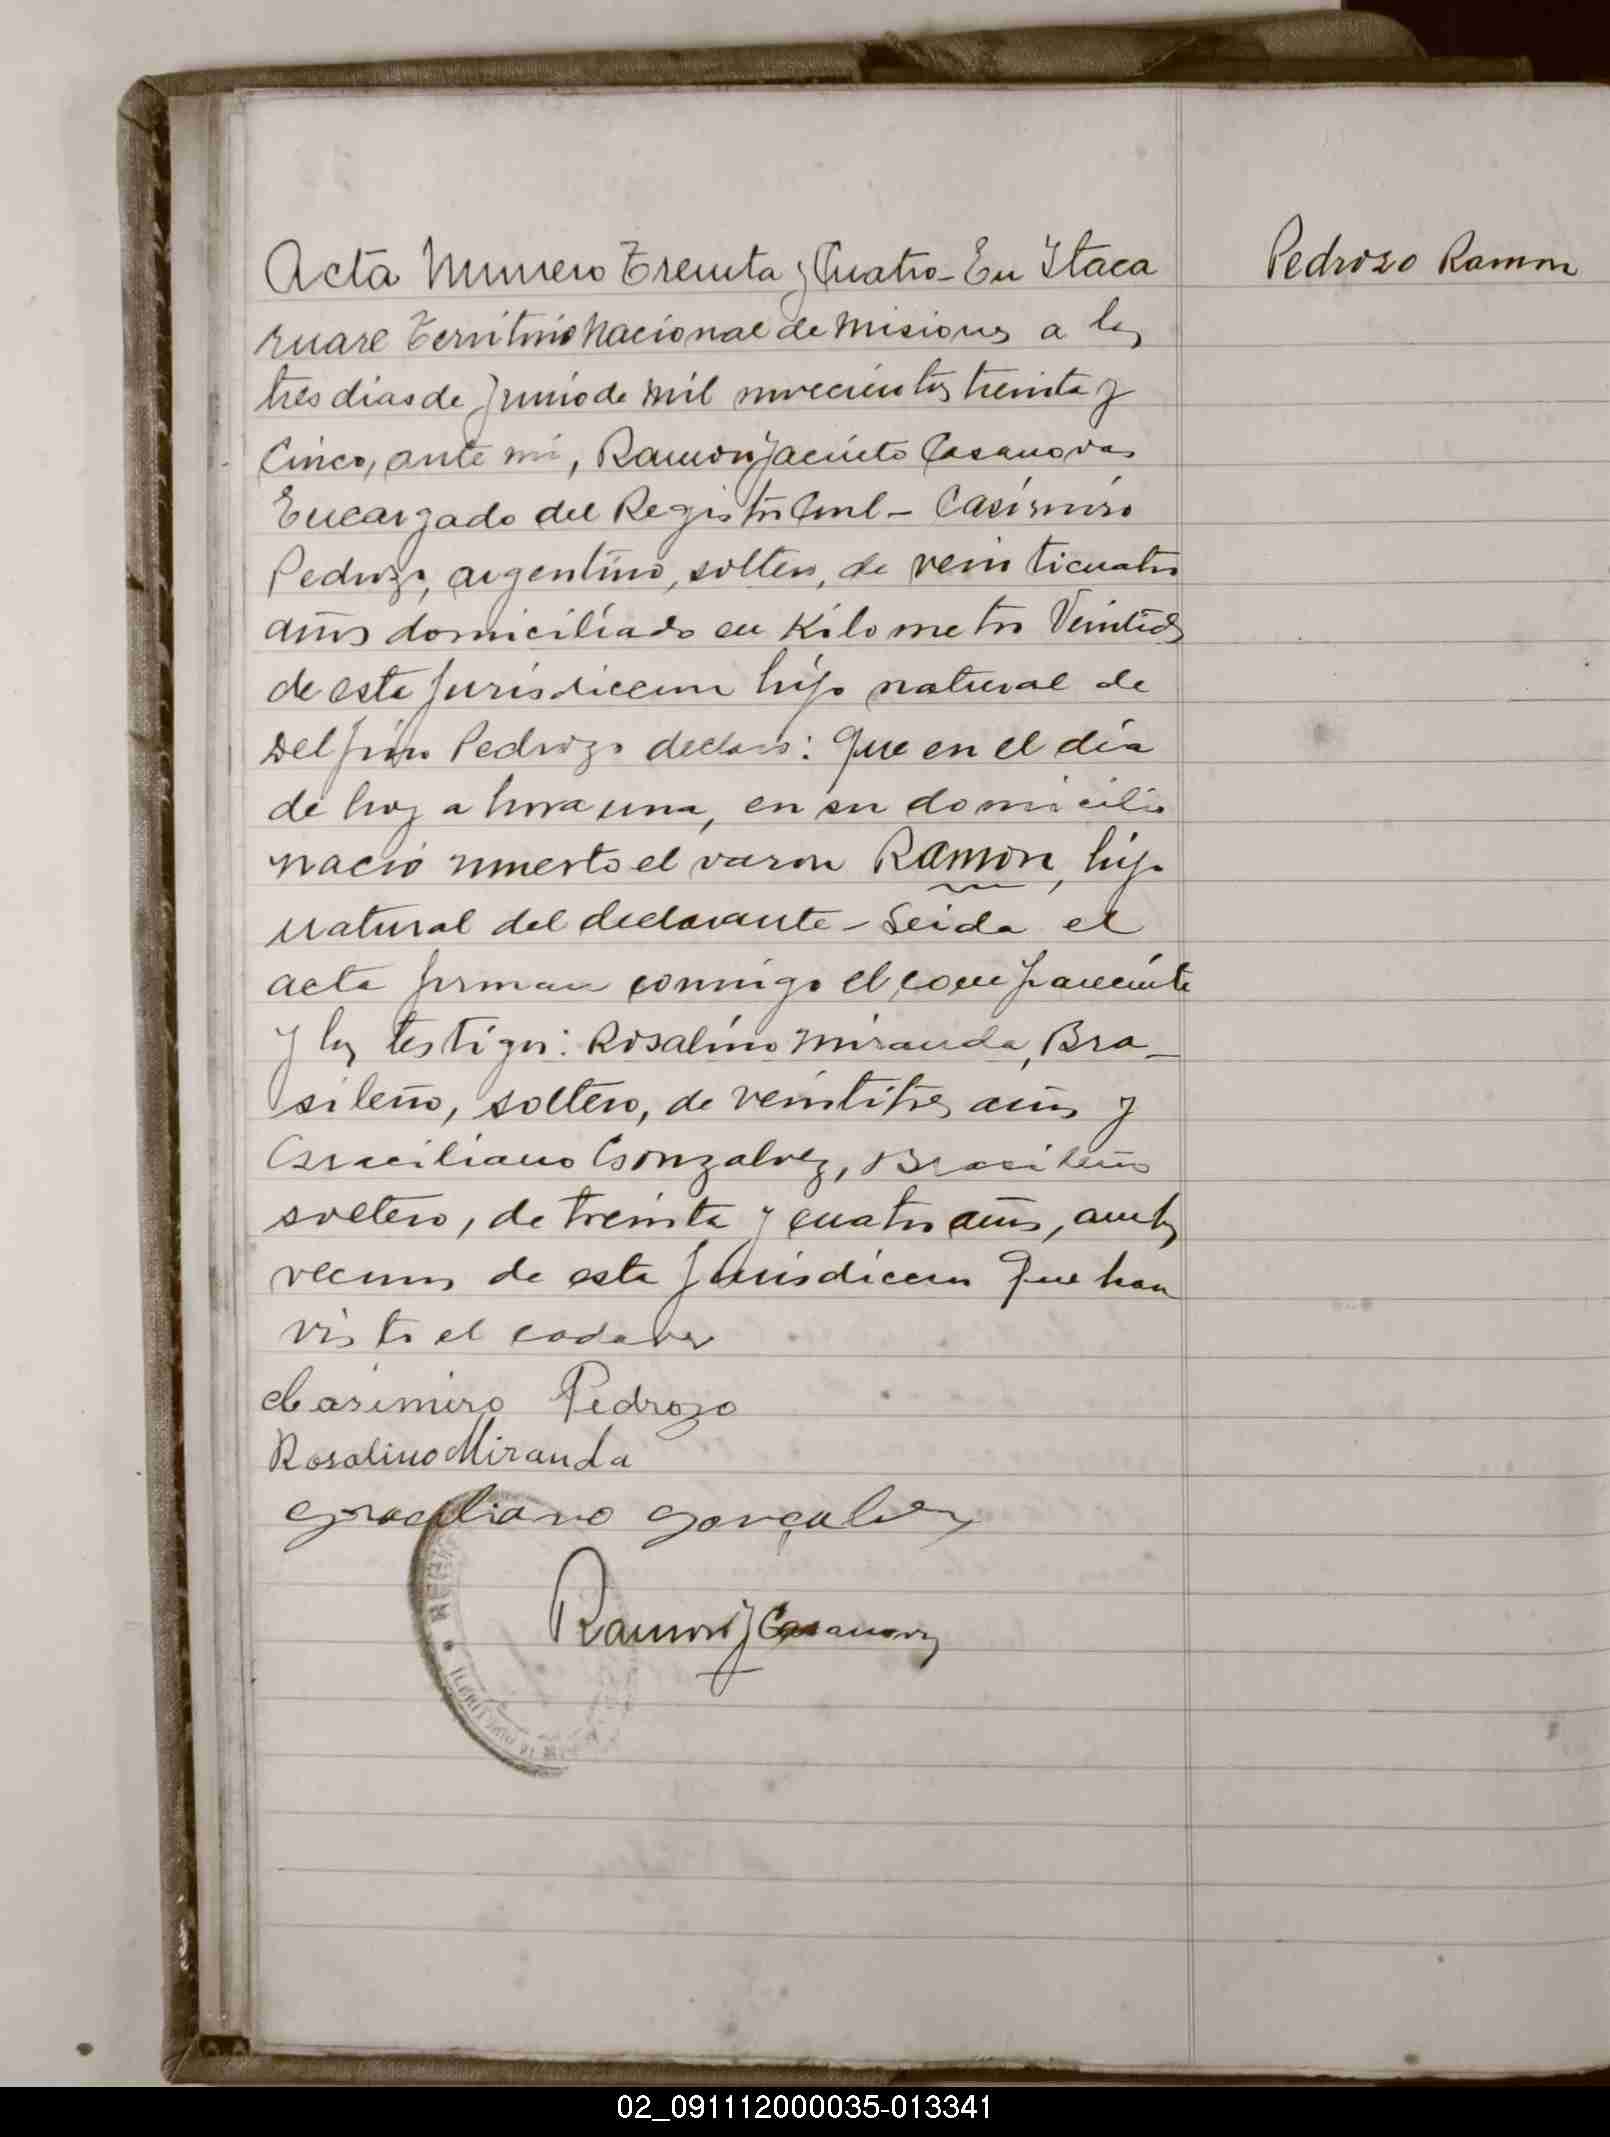 Acta Numero Treinta y Cuatro - En Itaca
Pedrozo Ramon
ruare Territorio Nacional de Misiones a los
tres dias de Junio de mil novecientos treinta y
Cinco, ante mi, Ramon Jacinto Casanovas
Encargado del Registro Civil - Casimiro
Pedrozo, argentino, soltero, de veinticuatro
años domiciliado en Kilometro Veintidos
de esta Jurisdiccion hijo natural de
Delfino Pedrozo declaro: Que en el dia
de hoy a hora una, en su domicilio
nació muerto el varon Ramon, hijo
natural del declarante - Leida el
acta firman conmigo el compareciente
y los testigos: Rosalino Miranda, Bra-
sileño, soltero, de veintitres años y
Graciliano Gonzalvez, Brasileño
soltero, de treinta y cuatro años, ambos
vecinos de esta Jurisdiccion Que han
visto el cadaver
Casimiro Pedrozo
Rosalino Miranda
Graciliano Gonçalvez
Ramon J Casanovas
02_091112000035-013341